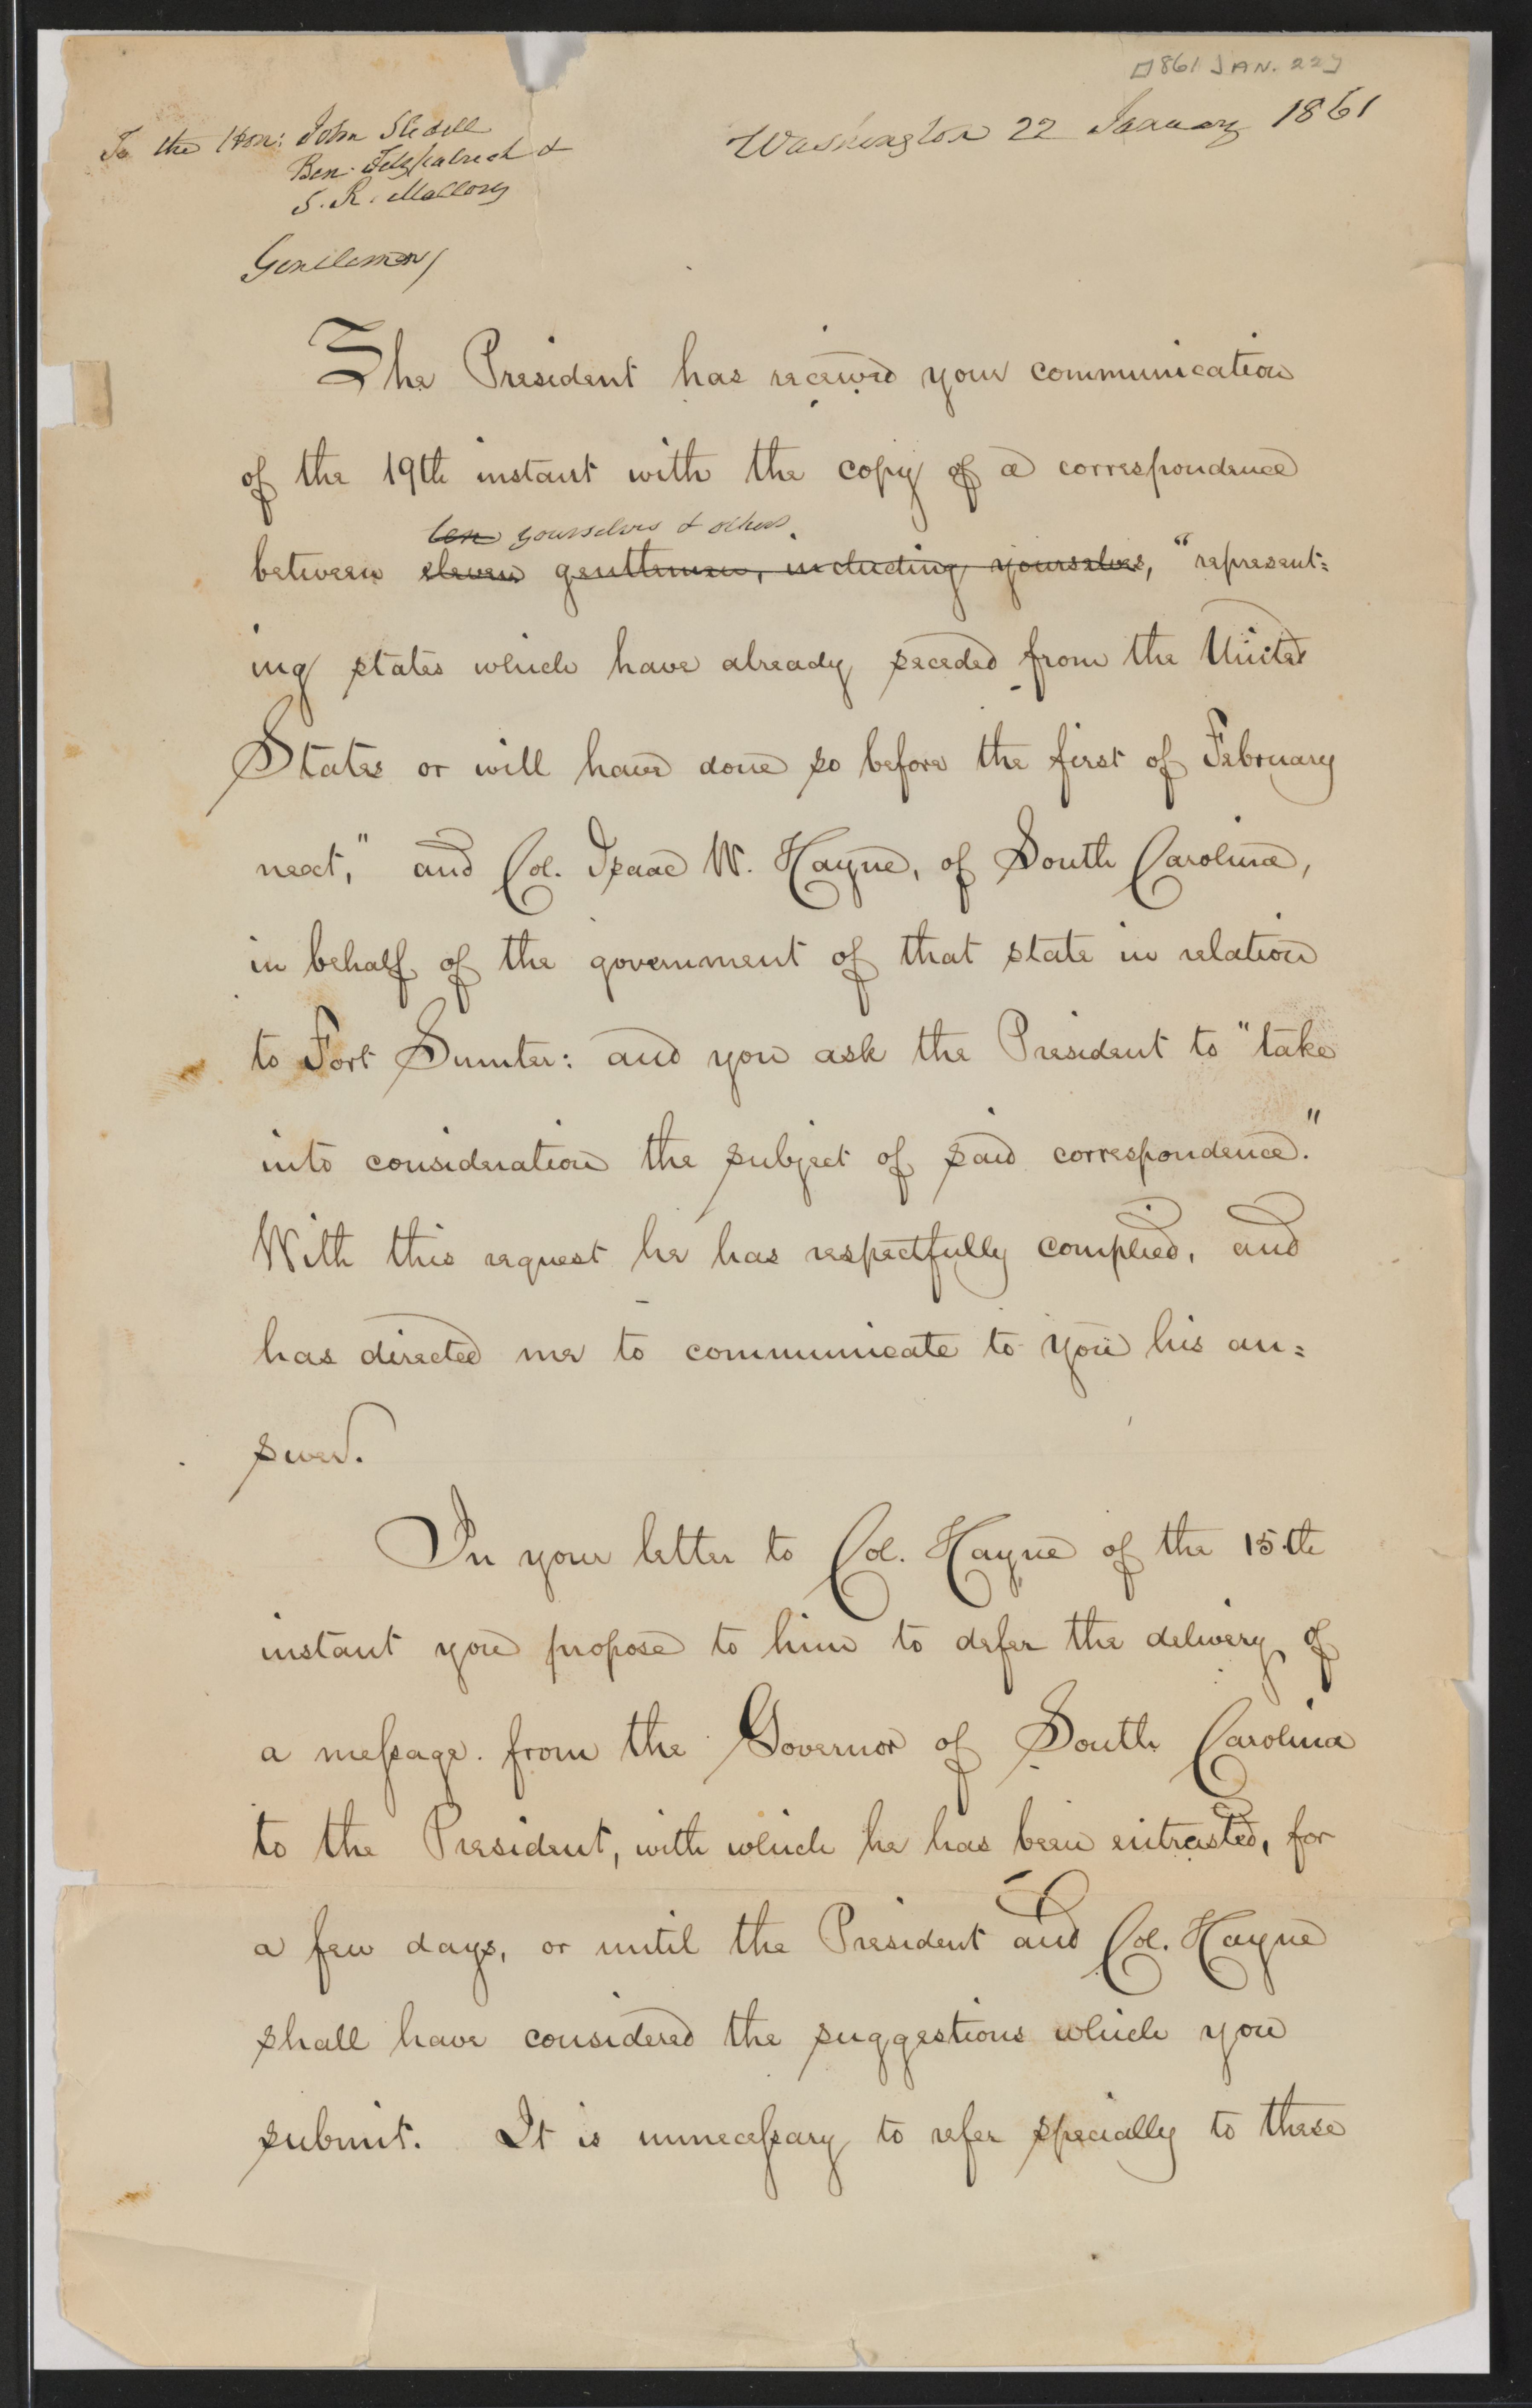 [1861 JAN. 22]
Washington 22 January 1861
To the Hon: John Slidell
Ben. Fitzpatrick &
S. R. Mallory
Gentlemen/
The President has received your communication
of the 19th instant with the copy of a correspondence
ten yourselves & others.
between eleven gentlemen, including yourselves, "represent:
ing states which have already seceded from the United
States or will have done so before the first of February
next," and Col. Isaac W. Hayne, of South Carolina,
in behalf of the government of that state in relation
to Fort Sumter: and you ask the President to "take
into consideration the subject of said correspondence."
With this request he has respectfully complied, and
has directed me to communicate to you his an:
swer.
In your letter to Col. Hayne of the 15th
instant you propose to him to defer the delivery of
a message from the Governor of South Carolina
to the President, with which he has been entrusted, for
a few days, or until the President and Col. Hayne
shall have considered the suggestions which you
submit. It is unnecessary to refer specially to these